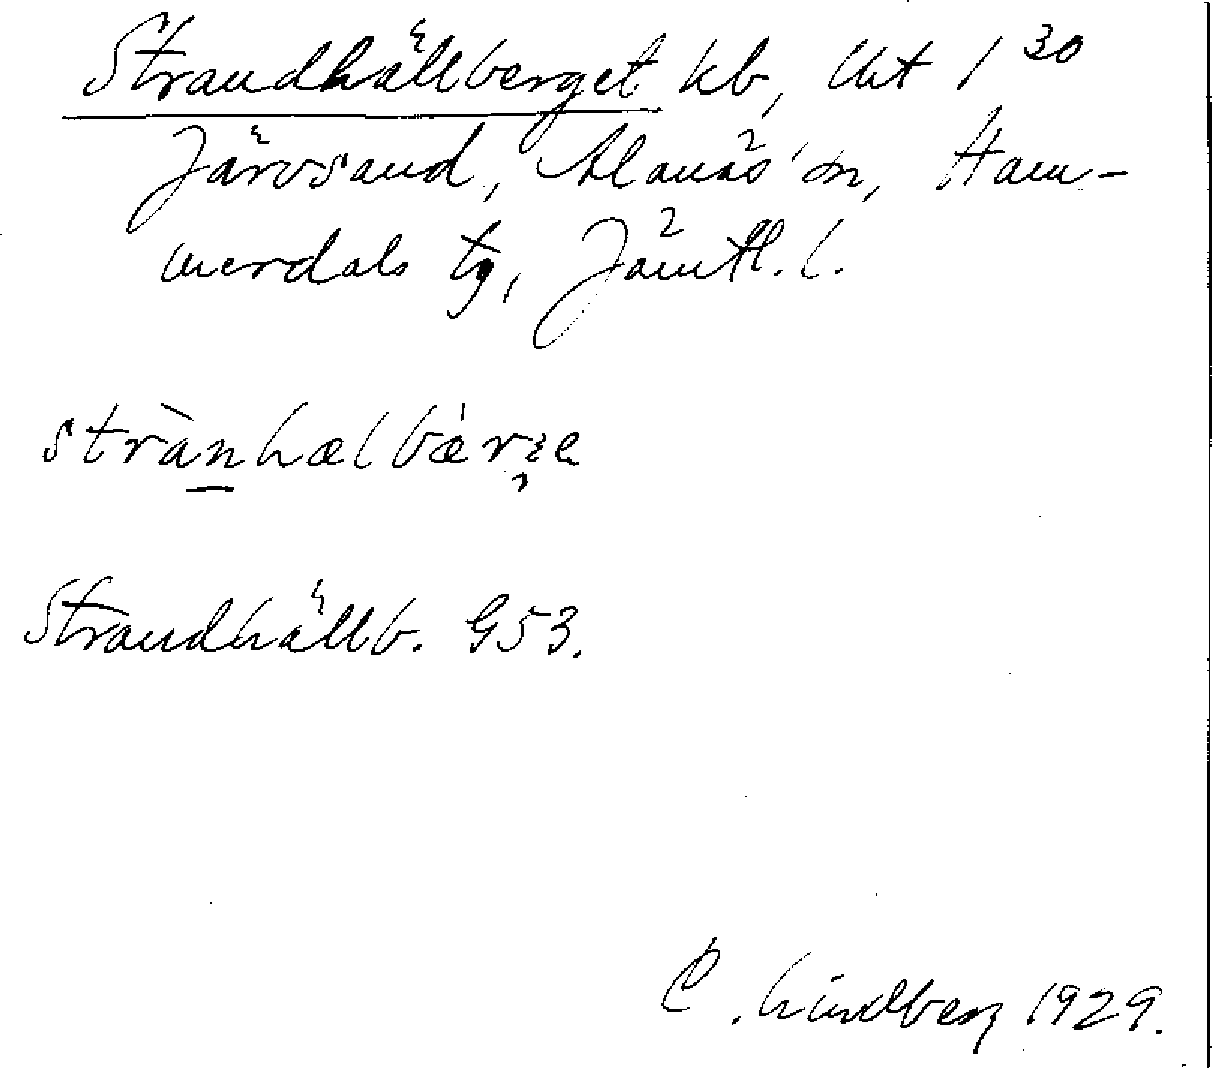 Strandhällberget kb, Ut 1 30
Järvsand, Alanäs sn, Ham-
merdals tg, Jämtl. l.
strànhælbær
Strandhällb. G53.
C. Lindberg 1929.